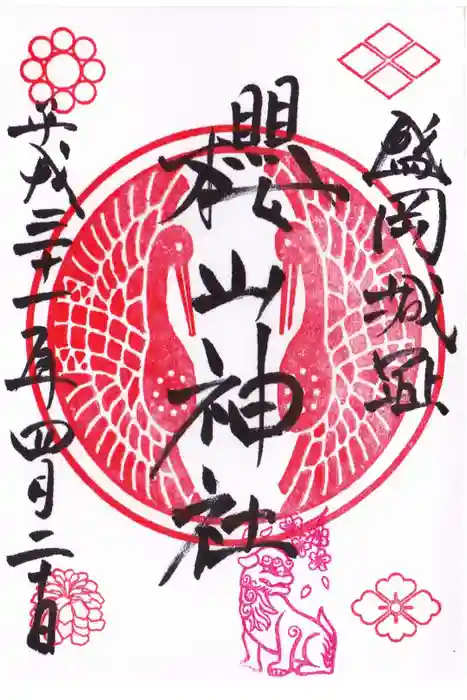 盛岡城趾
櫻山神社
平成三十一年四月二十日